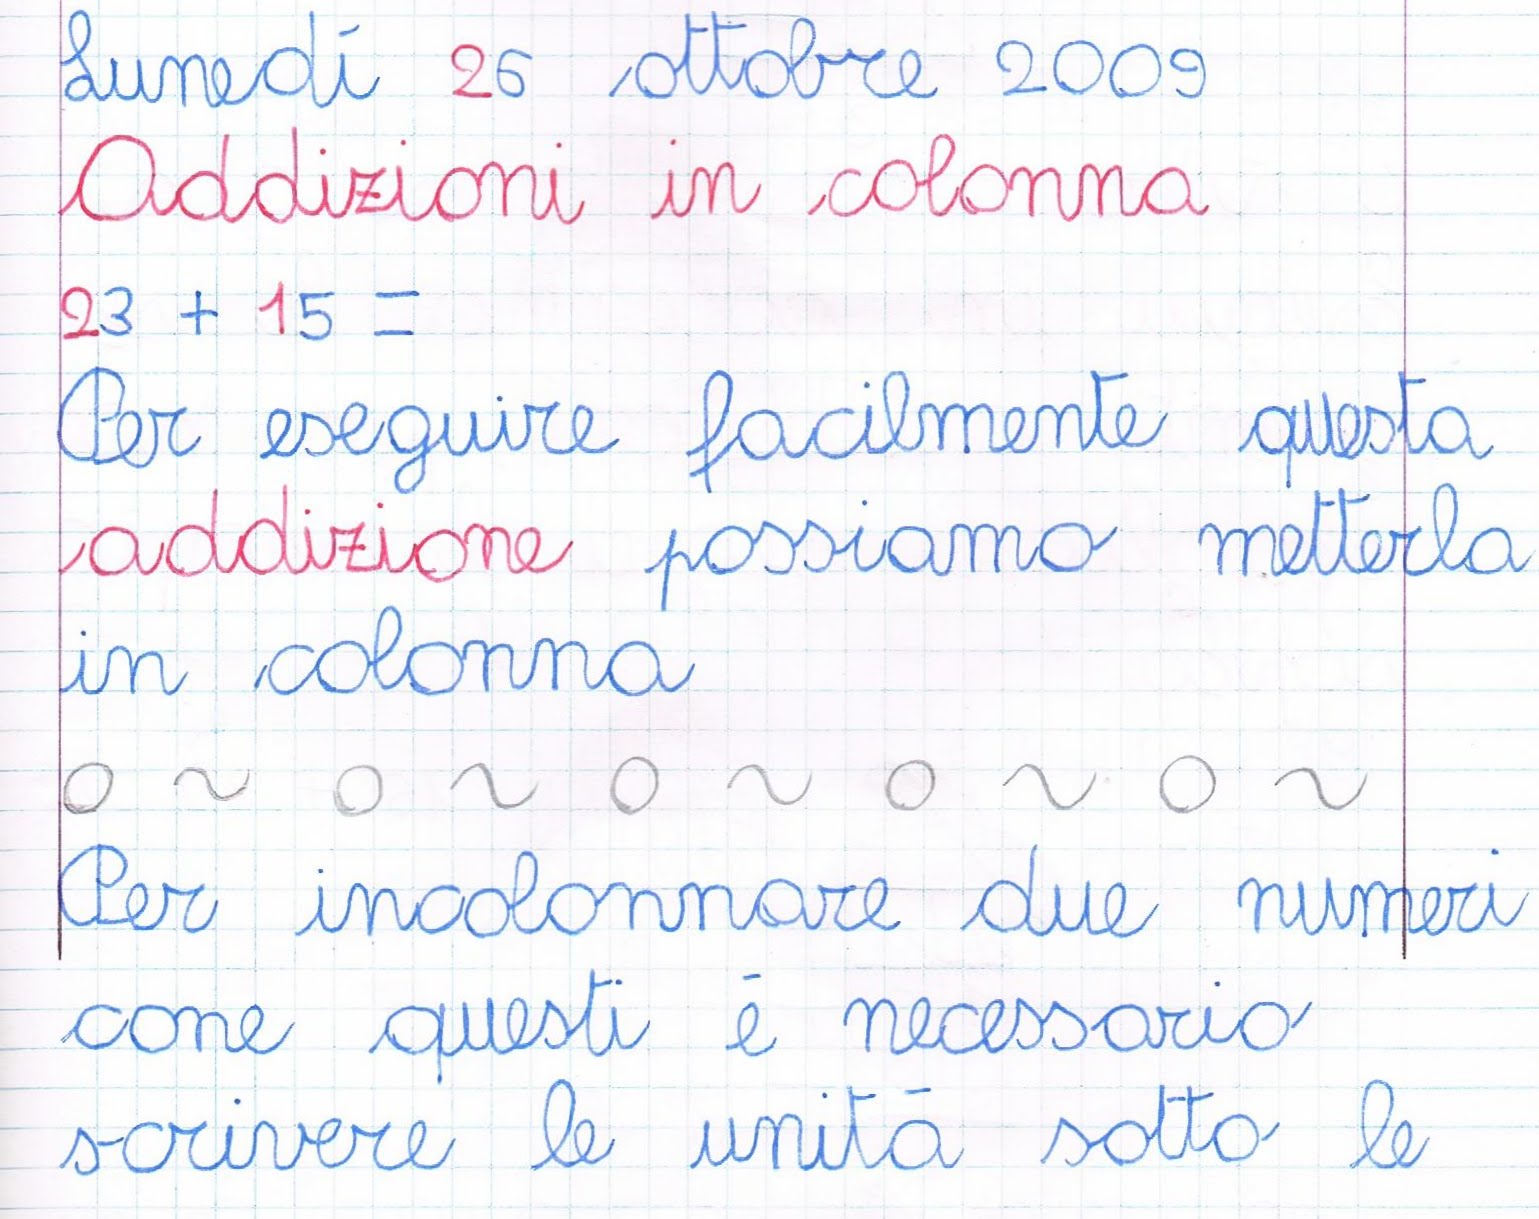 Lunedí 26 ottobre 2009
Addizioni in colonna
23 + 15 =
Per eseguire facilmente questa
addizione possiamo metterla
in colonna
Per incolonnare due numeri
cone questi é necessario
scrivere le unitá sotto le